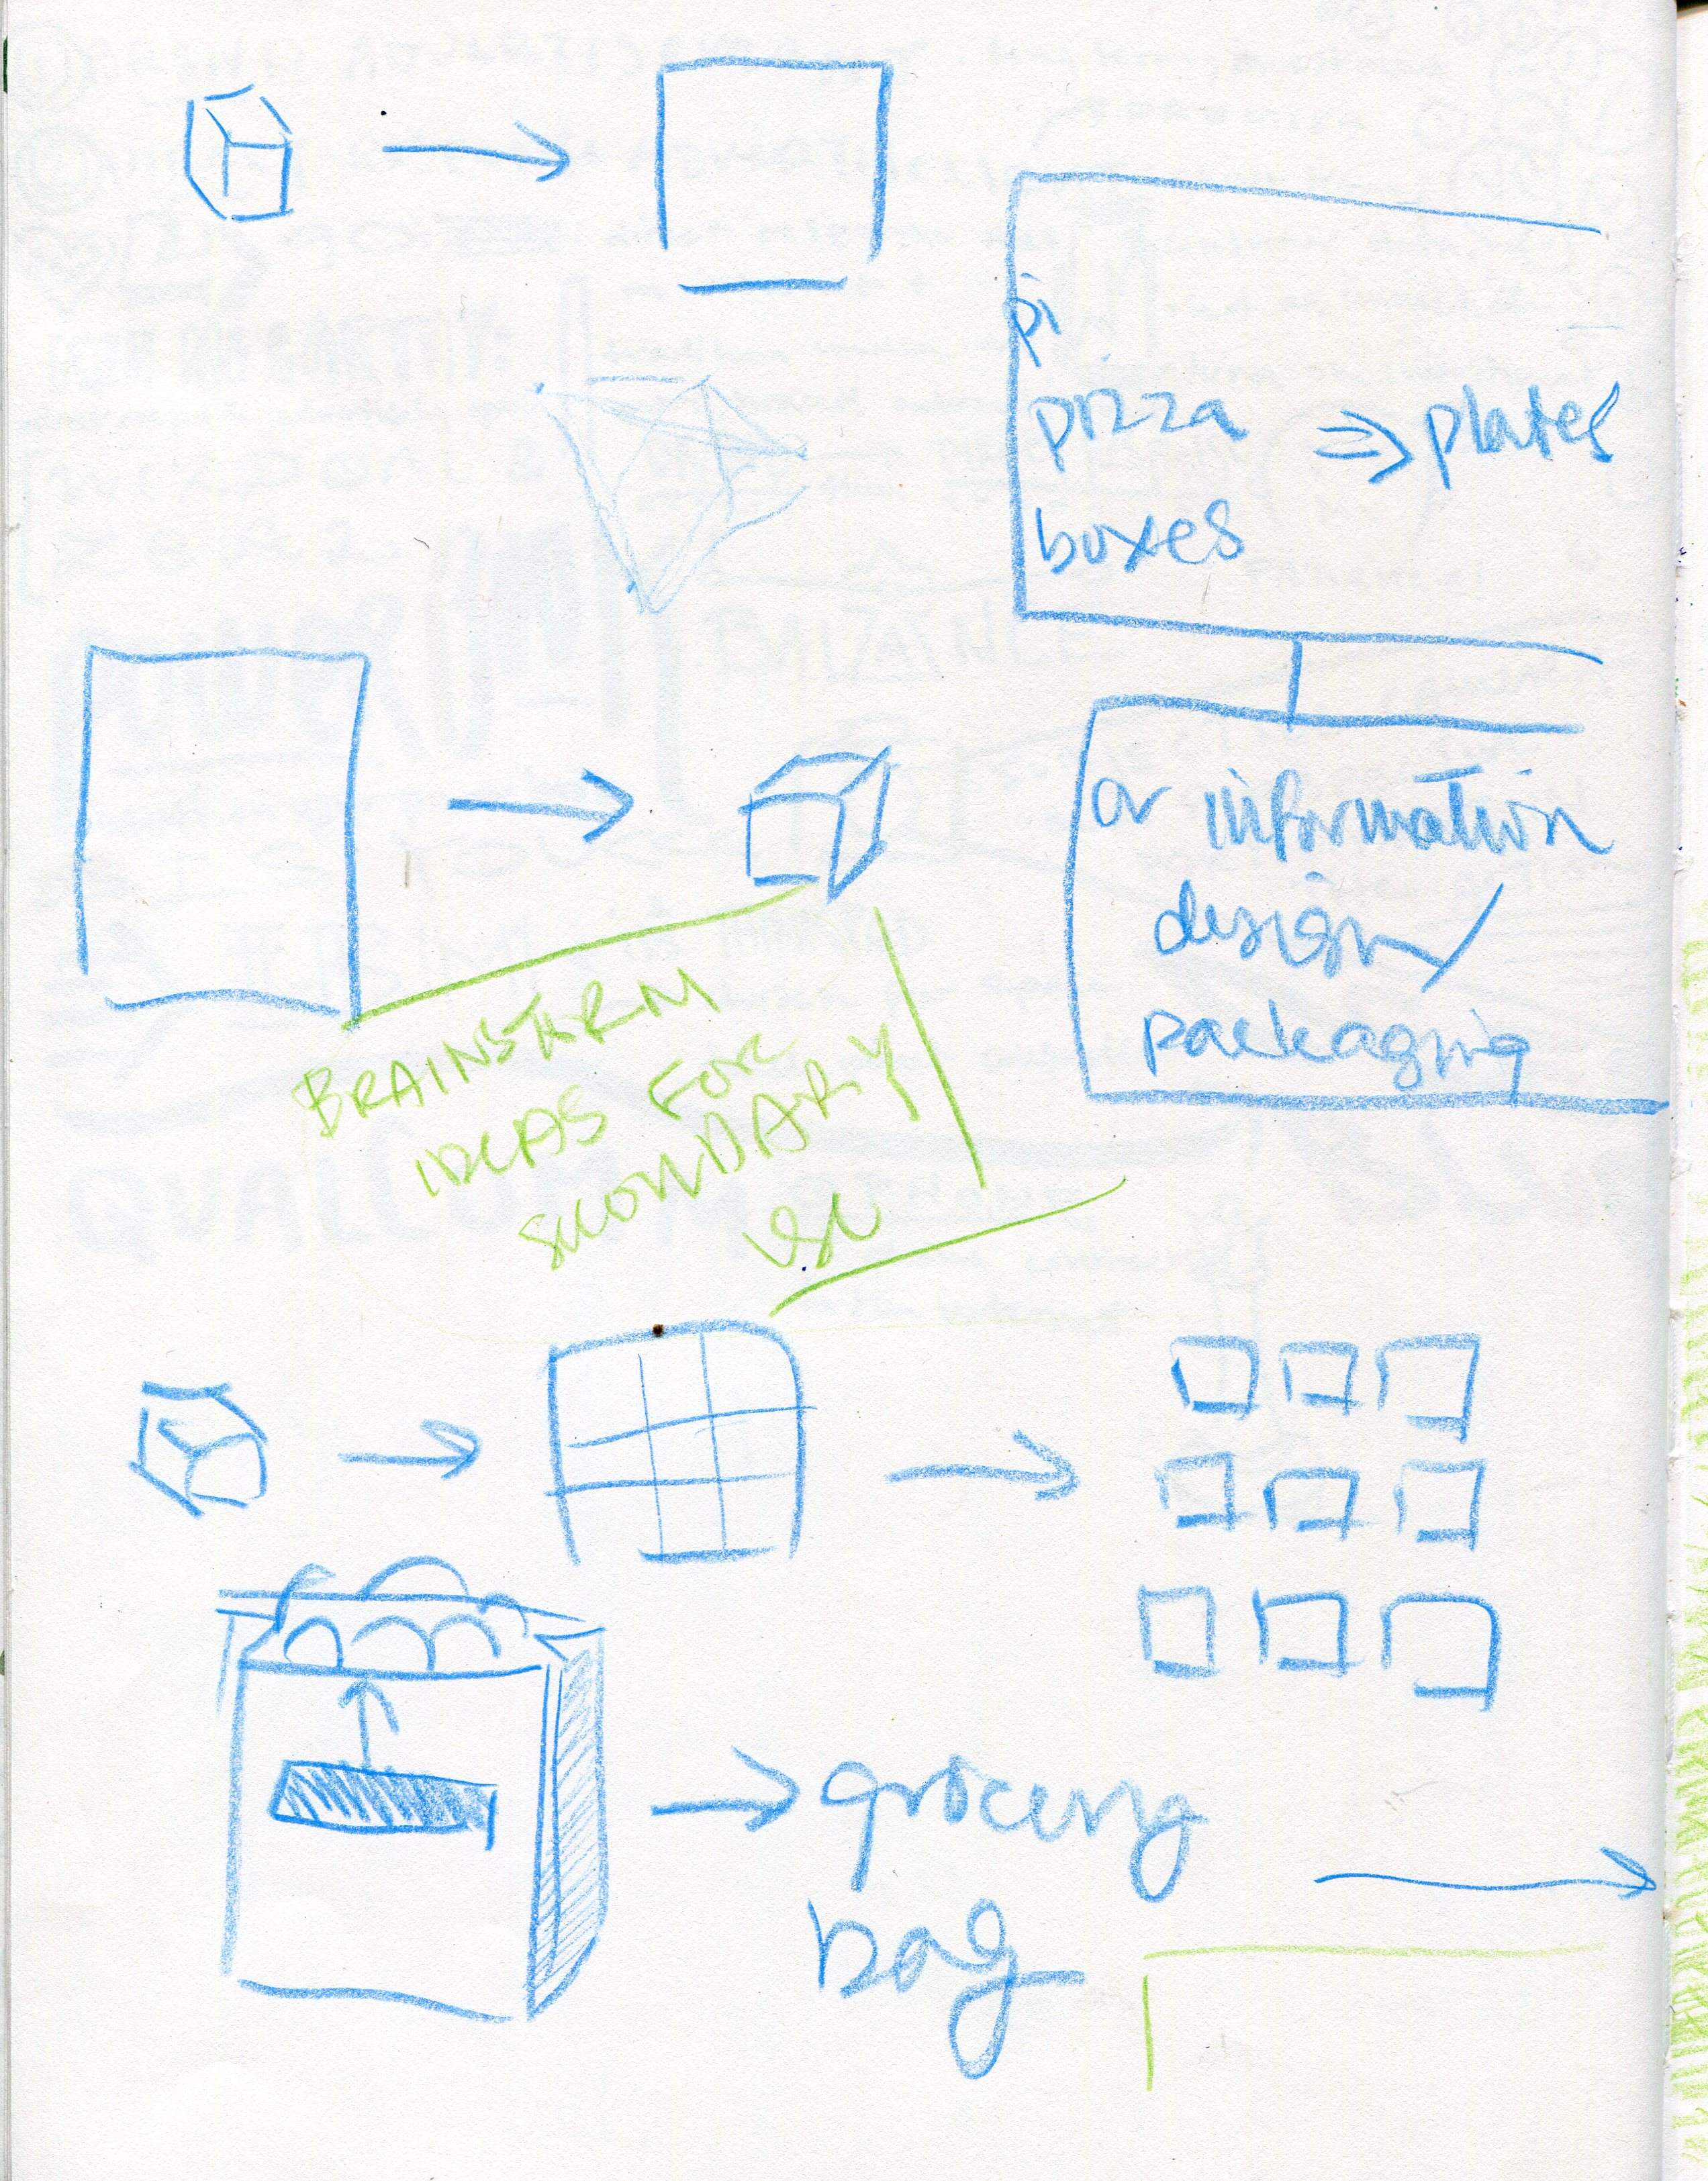 pi
pizza ⇒ plates
boxes
or information
design/
packaging
BRAINSTORM
IDEAS FOR
SECONDARY
USE
→ grocery
bag